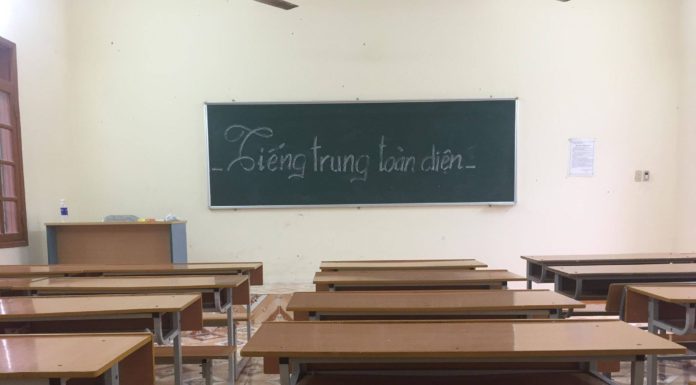 _Tiếng trung toàn diện_